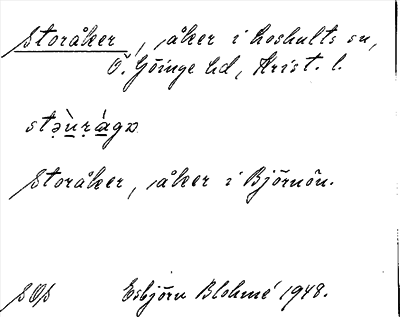 Storåker, åker i Loshults sn,
Ö. Göinge hd, Krist. l.
stə̀ùrágə.
Storåker, åker i Björnön.
SOS Esbjörn Blohmé 1948.